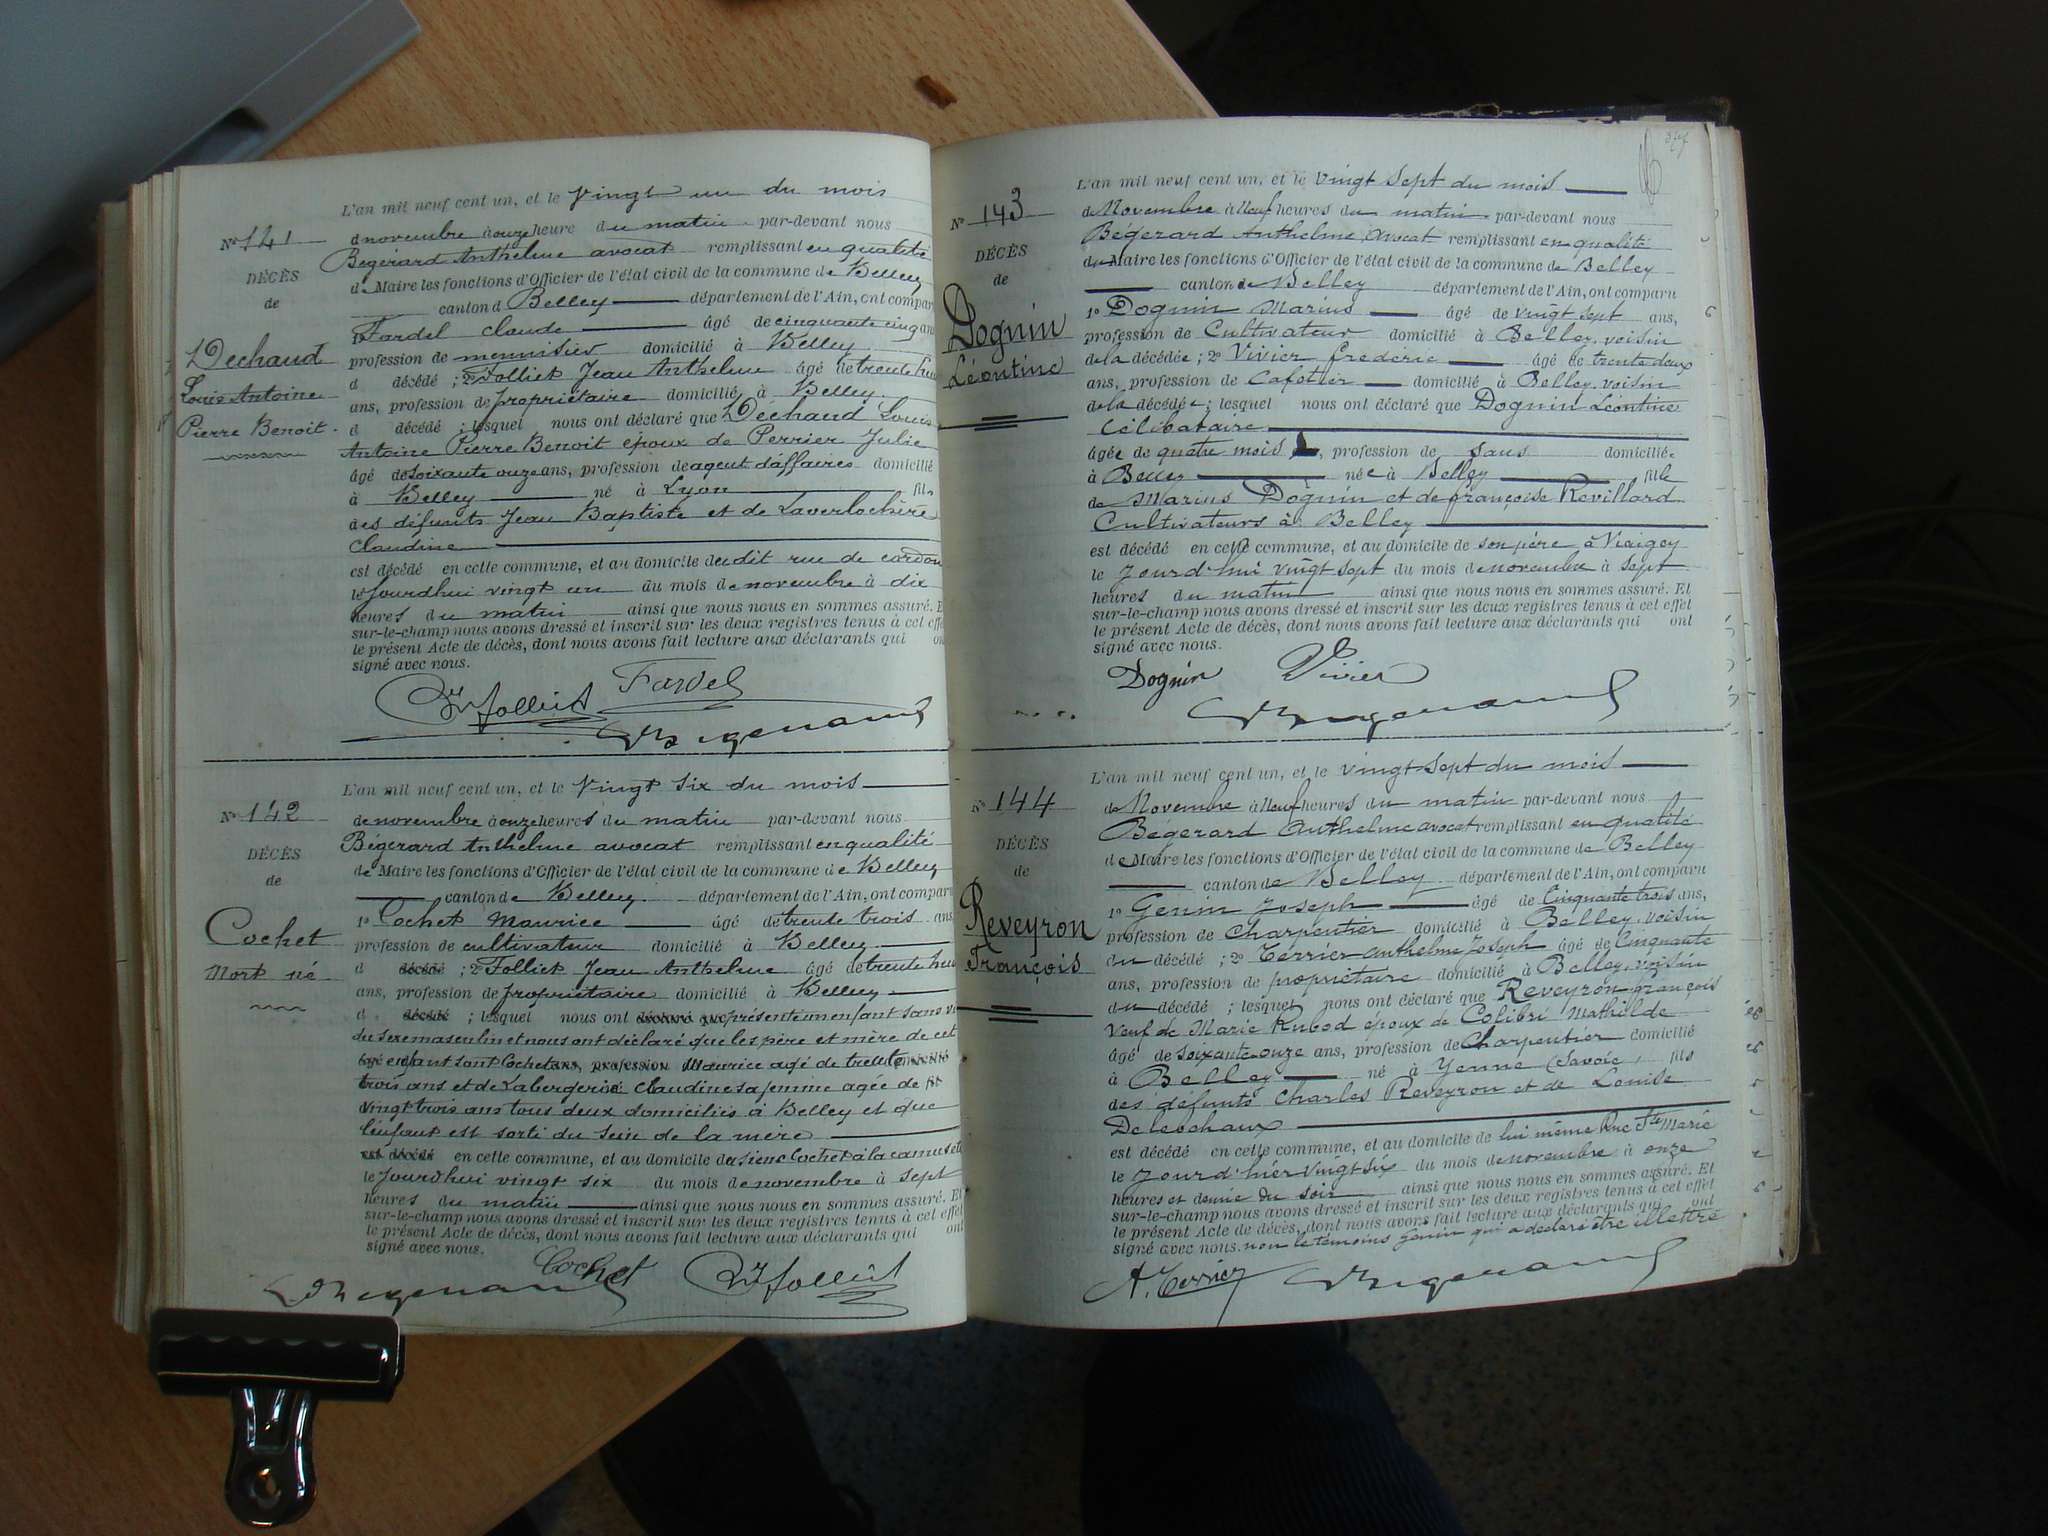 L'an mil neuf cent un, et le vingt un du mois
No 141
de novembre à onze heure du matin par-devant nous
Bégerard Anthelme avocat remplissant en qualité
DÉCÈS
de Maire les fonctions d'Officier de l'état civil de la commune de Belley
de
canton d Belley département de l'Ain, ont comparu
1o Fardel Claude âgé de cinquante cinq ans
Dechaud
Louis Antoine
Pierre Benoit
profession de menuisier domicilié à Belley
d décédé ; 2o Folliet Jean Anthelme âgé de trente huit
ans, profession de propriétaire domicilié à Belley
d décédé ; lesquel nous ont déclaré que Déchaud Louis
Antoine Pierre Benoit époux de Perrier Julie
âgé de soixante onze ans, profession de agent d'affaires domicilié
à Belley né à Lyon fils
des défunts Jean Baptiste et de Laverlochère
Claudine
est décédé en cette commune, et au domicile du dit rue de cordon
le jourdhui vingt un du mois de novembre à dix
heures du matin ainsi que nous nous en sommes assuré. Et
sur-le-champ nous avons dressé et inscrit sur les deux registres tenus à cet effet
le présent Acte de décès, dont nous avons fait lecture aux déclarants qui ont
signé avec nous.
Folliet Fardel
Bégerard
L'an mil neuf cent un, et le vingt six du mois
No 142
de novembre à onze heures du matin par-devant nous
Bégerard Anthelme avocat remplissant en qualité
DÉCÈS
de Maire les fonctions d'Officier de l'état civil de la commune de Belley
de
canton de Belley département de l'Ain, ont comparu
Cochet
Mort né
1o Cochet Maurice âgé de trente trois ans
profession de cultivateur domicilié à Belley
d décédé ; 2o Folliet Jean Anthelme âgé de trente huit
ans, profession de propriétaire domicilié à Belley
d décédé ; lesquel nous ont déclaré que présenté un enfant sans vie
du sexe masculin et nous ont déclaré que les père et mère de cet
enfant sont Cochet Maurice agé de trente
trois ans et de Labergerie Claudine sa femme agée de
vingt trois ans tous deux domiciliés à Belley et que
l'enfant est sorti du sein de la mère
est décédé en cette commune, et au domicile du sieur Cochet à la camusete
le jourdhui vingt six du mois de novembre à sept
heures du matin ainsi que nous nous en sommes assuré. Et
sur-le-champ nous avons dressé et inscrit sur les deux registres tenus à cet effet
le présent Acte de décès, dont nous avons fait lecture aux déclarants qui ont
signé avec nous.
Cochet Folliet
Bégerard
L'an mil neuf cent un, et le vingt sept du mois
No 143
de Novembre à Neuf heures du matin par-devant nous
Bégerard Anthelme, avocat remplissant en qualité
DÉCÈS
du Maire les fonctions d'Officier de l'état civil de la commune de Belley
de
canton de Belley département de l'Ain, ont comparu
Dognin
Léontine
1o Dognin Marius âgé de vingt sept ans,
profession de Cultivateur domicilié à Belley, voisin
de la décédée ; 2o Vivier frédéric âgé de trente deux
ans, profession de Cafetier domicilié à Belley, voisin
de la décédée ; lesquel nous ont déclaré que Dognin Léontine
Célibataire
âgée de quatre mois, profession de sans domiciliée
à Belley née à Belley fille
de Marius Dognin et de françoise Revillard
Cultivateurs à Belley
est décédé en cette commune, et au domicile de son père à
le jourd'hui vingt sept du mois de novembre à sept
heures du matin ainsi que nous nous en sommes assuré. Et
sur-le-champ nous avons dressé et inscrit sur les deux registres tenus à cet effet
le présent Acte de décès, dont nous avons fait lecture aux déclarants qui ont
signé avec nous.
Dognin Vivier
Bégerard
L'an mil neuf cent un, et le vingt sept du mois
No 144
de Novembre à Neuf heures du matin par-devant nous
Bégerard Anthelme avocat remplissant en qualité
DÉCÈS
de Maire les fonctions d'Officier de l'état civil de la commune de Belley
de
canton de Belley département de l'Ain, ont comparu
Reveyron
François
1o Genin Joseph âgé de Cinquante trois ans,
profession de Charpentier domicilié à Belley, voisin
du décédé ; 2o Terrier Anthelme Joseph âgé de Cinquante
ans, profession de propriétaire domicilié à Belley, voisin
du décédé ; lesquel nous ont déclaré que Reveyron françois
Veuf de Marie Rubod époux de Colibri Mathilde
âgé de soixante onze ans, profession de Charpentier domicilié
à Belley né à Yenne (Savoie) fils
des défunts Charles Reveyron et de Louise
Deleschaux
est décédé en cette commune, et au domicile de lui même Rue Ste Marie
le jourd'hier vingt six du mois de novembre à onze
heures et demie du soir ainsi que nous nous en sommes assuré. Et
sur-le-champ nous avons dressé et inscrit sur les deux registres tenus à cet effet
le présent Acte de décès, dont nous avons fait lecture aux déclarants qui ont
signé avec nous. non le témoins genin qui a déclaré être illettré
A. Terrier Bégerard